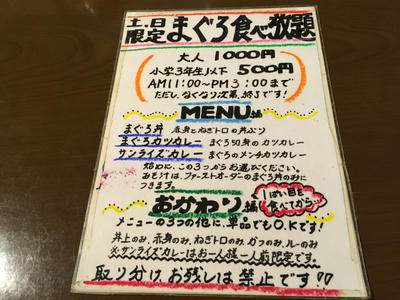 土.日
限定 まぐろ食べ放題
大人 1000円
小学3年生以下 500円
AM11:00〜PM3:00まで
ただし、なくなり次第、終了です!
MENU編
まぐろ丼 赤身とねぎトロの丼ぶり
まぐろカツカレー まぐろ切身のカツカレー
サンライズカレー まぐろのメンチカツカレー
始めに、この3つからお選びください。
おみそ汁は、ファーストオーダーのまぐろ丼のみに
つきます。
おかわり編
1ぱい目を
食べてから
メニューの3つの他に、単品でもO.Kです!
丼上のみ、赤身のみ、ねぎトロのみ、カツのみ、ルーのみ
※サンライズカレーはお一人様一人前限定です。
取り分け、お残しは禁止です!!